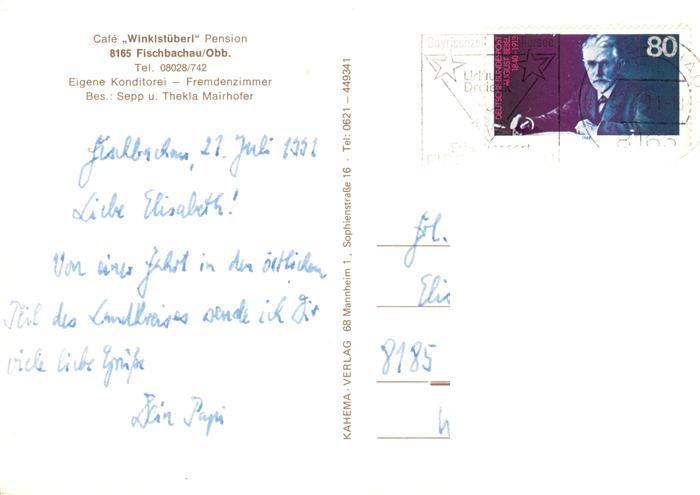 Café „Winklstüberl" Pension
8165 Fischbachau/Obb.
Tel. 08028/742
Eigene Konditorei – Fremdenzimmer
Bes.: Sepp u. Thekla Mairhofer
Fischbachau, 21. Juli 1991
Liebe Elisabeth!
Von einer Fahrt in den östlichen
Teil des Landkreises sende ich Dir
viele liebe Grüße
Dein Papi
KAHEMA-VERLAG 68 Mannheim 1, Sophienstraße 16 · Tel: 0621 – 449341
DEUTSCHE BUNDESPOST
AUGUST BEBEL
1840-1913
80
1988
Bayrischzell
Urlaub
8165
Frl.
Elis
8185